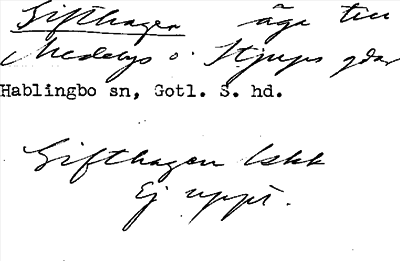 Gifthagen äga till
Medebys o. Stjups gdar
Hablingbo sn, Gotl. S. hd.
Gifthagen Iskk
Ej uppt.